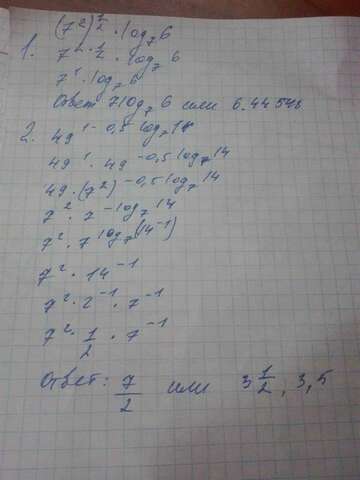 1. (7²)^½ · log₇ 6
7^(2 · ½) · log₇ 6
7¹ · log₇ 6
Ответ 7log₇ 6 или 6.44546
2. 49^(1 - 0,5 log₇ 14)
49¹ · 49^(-0,5 log₇ 14)
49 · (7²)^(-0,5 log₇ 14)
7² · 7^(-log₇ 14)
7² · 7^(log₇(14⁻¹))
7² · 14⁻¹
7² · 2⁻¹ · 7⁻¹
7² · 1/2 · 7⁻¹
Ответ: 7/2 или 3 1/2, 3,5